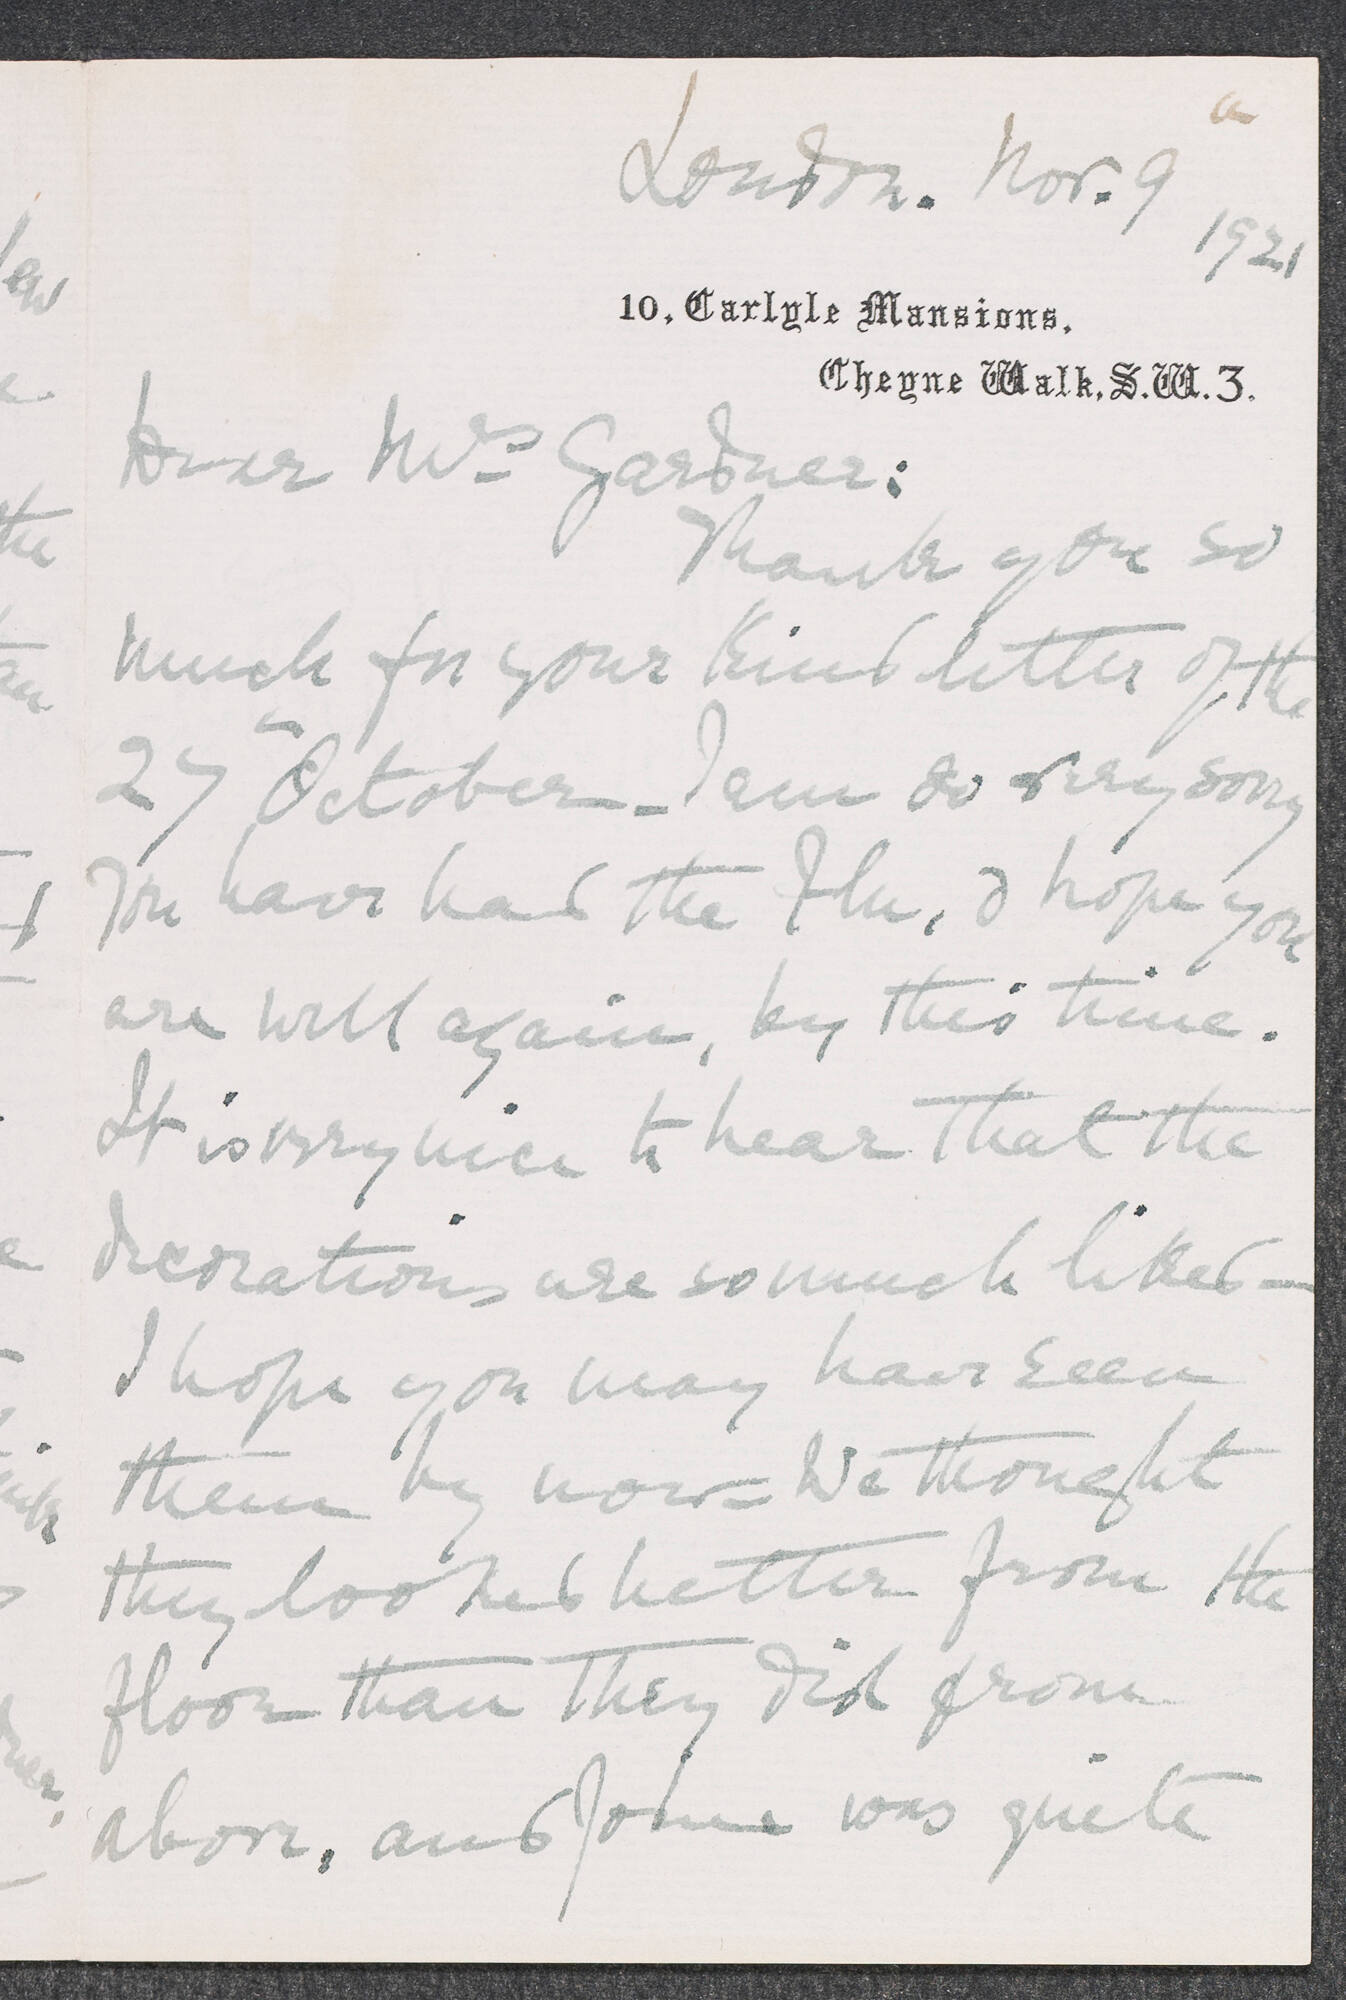 London. Nov. 9
1921
10, Carlyle Mansions,
Cheyne Walk, S.W.3.
Dear Mrs Gardner:
Thank you so
much for your kind letter of the
27 October — I am so very sorry
you have had the Flu, & hope you
are well again, by this time.
It is very nice to hear that the
decorations are so much liked —
I hope you may have seen
them by now — We thought
they looked better from the
floor than they did from
above, and John was quite